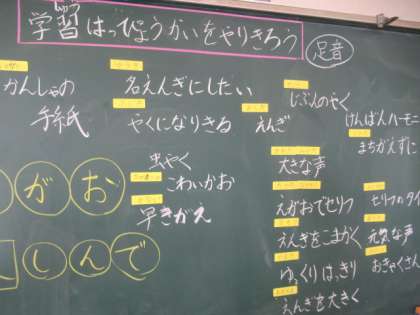 がくしゅう
学習はっぴょうかいをやりきろう
足音
かんしゃの
手紙
名えんぎにしたい
やくになりきる
えんぎ
じぶんのやく
けんばんハーモニ
まちがえずに
虫やく
こわいかお
早きがえ
大きな声
えがおでセリフ
えんぎをこまかく
ゆっくりはっきり
えんぎを大きく
セリフのタイ
元気な声
おきゃくさん
がお
しんで